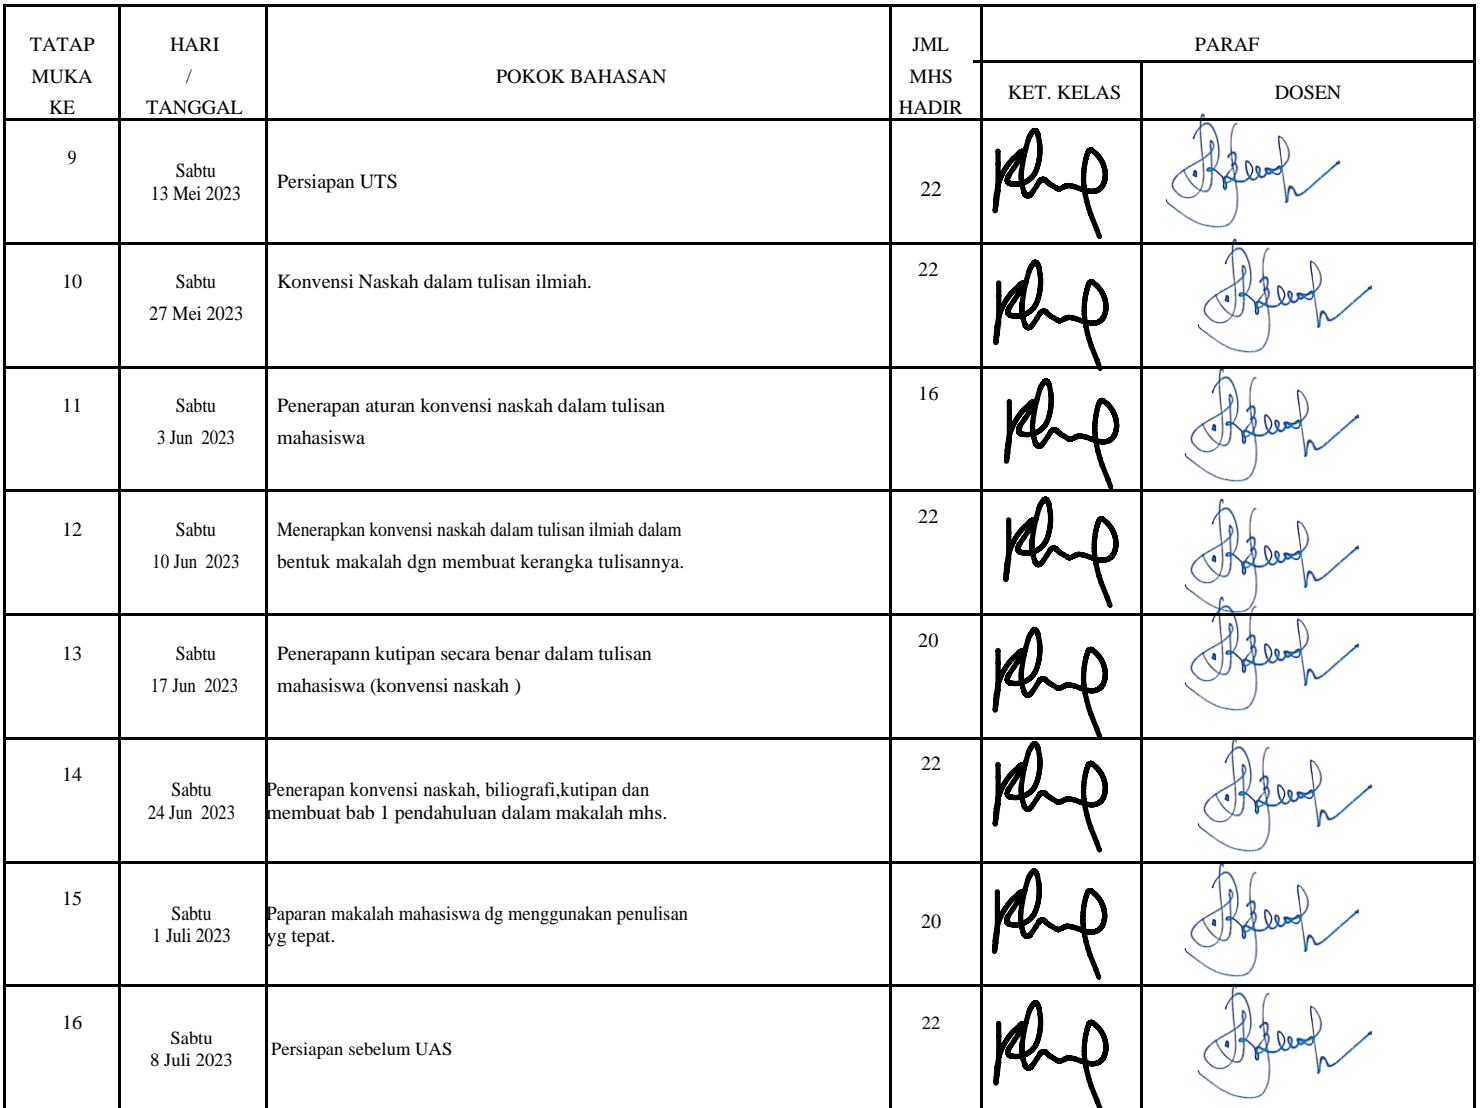 TATAP MUKA KE
HARI / TANGGAL
POKOK BAHASAN
JML MHS HADIR
PARAF
KET. KELAS
DOSEN
9
Sabtu
13 Mei 2023
Persiapan UTS
22
10
Sabtu
27 Mei 2023
Konvensi Naskah dalam tulisan ilmiah.
22
11
Sabtu
3 Jun 2023
Penerapan aturan konvensi naskah dalam tulisan
mahasiswa
16
12
Sabtu
10 Jun 2023
Menerapkan konvensi naskah dalam tulisan ilmiah dalam
bentuk makalah dgn membuat kerangka tulisannya.
22
13
Sabtu
17 Jun 2023
Penerapann kutipan secara benar dalam tulisan
mahasiswa (konvensi naskah )
20
14
Sabtu
24 Jun 2023
Penerapan konvensi naskah, biliografi,kutipan dan
membuat bab 1 pendahuluan dalam makalah mhs.
22
15
Sabtu
1 Juli 2023
Paparan makalah mahasiswa dg menggunakan penulisan
yg tepat.
20
16
Sabtu
8 Juli 2023
Persiapan sebelum UAS
22